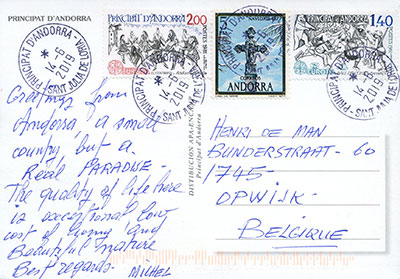 PRINCIPAT D'ANDORRA
PRINCIPAT D'ANDORRA
2,00
5
CORREOS
ANDORRA
1,40
PRINCIPAT D'ANDORRA
14-6-2019
SANT JULIA DE LORIA
Greetings from
Andorra, a small
country, but a
Real PARADISE-
The quality of life here
is exceptional low
cost of living and
Beautiful nature
Best regards-
MICHEL
DISTRIBUCION APA-ENCAMP
Principat d'Andorra
HENRI DE MAN
BUNDERSTRAAT-60
1745-
OPWIJK-
BELGIQUE